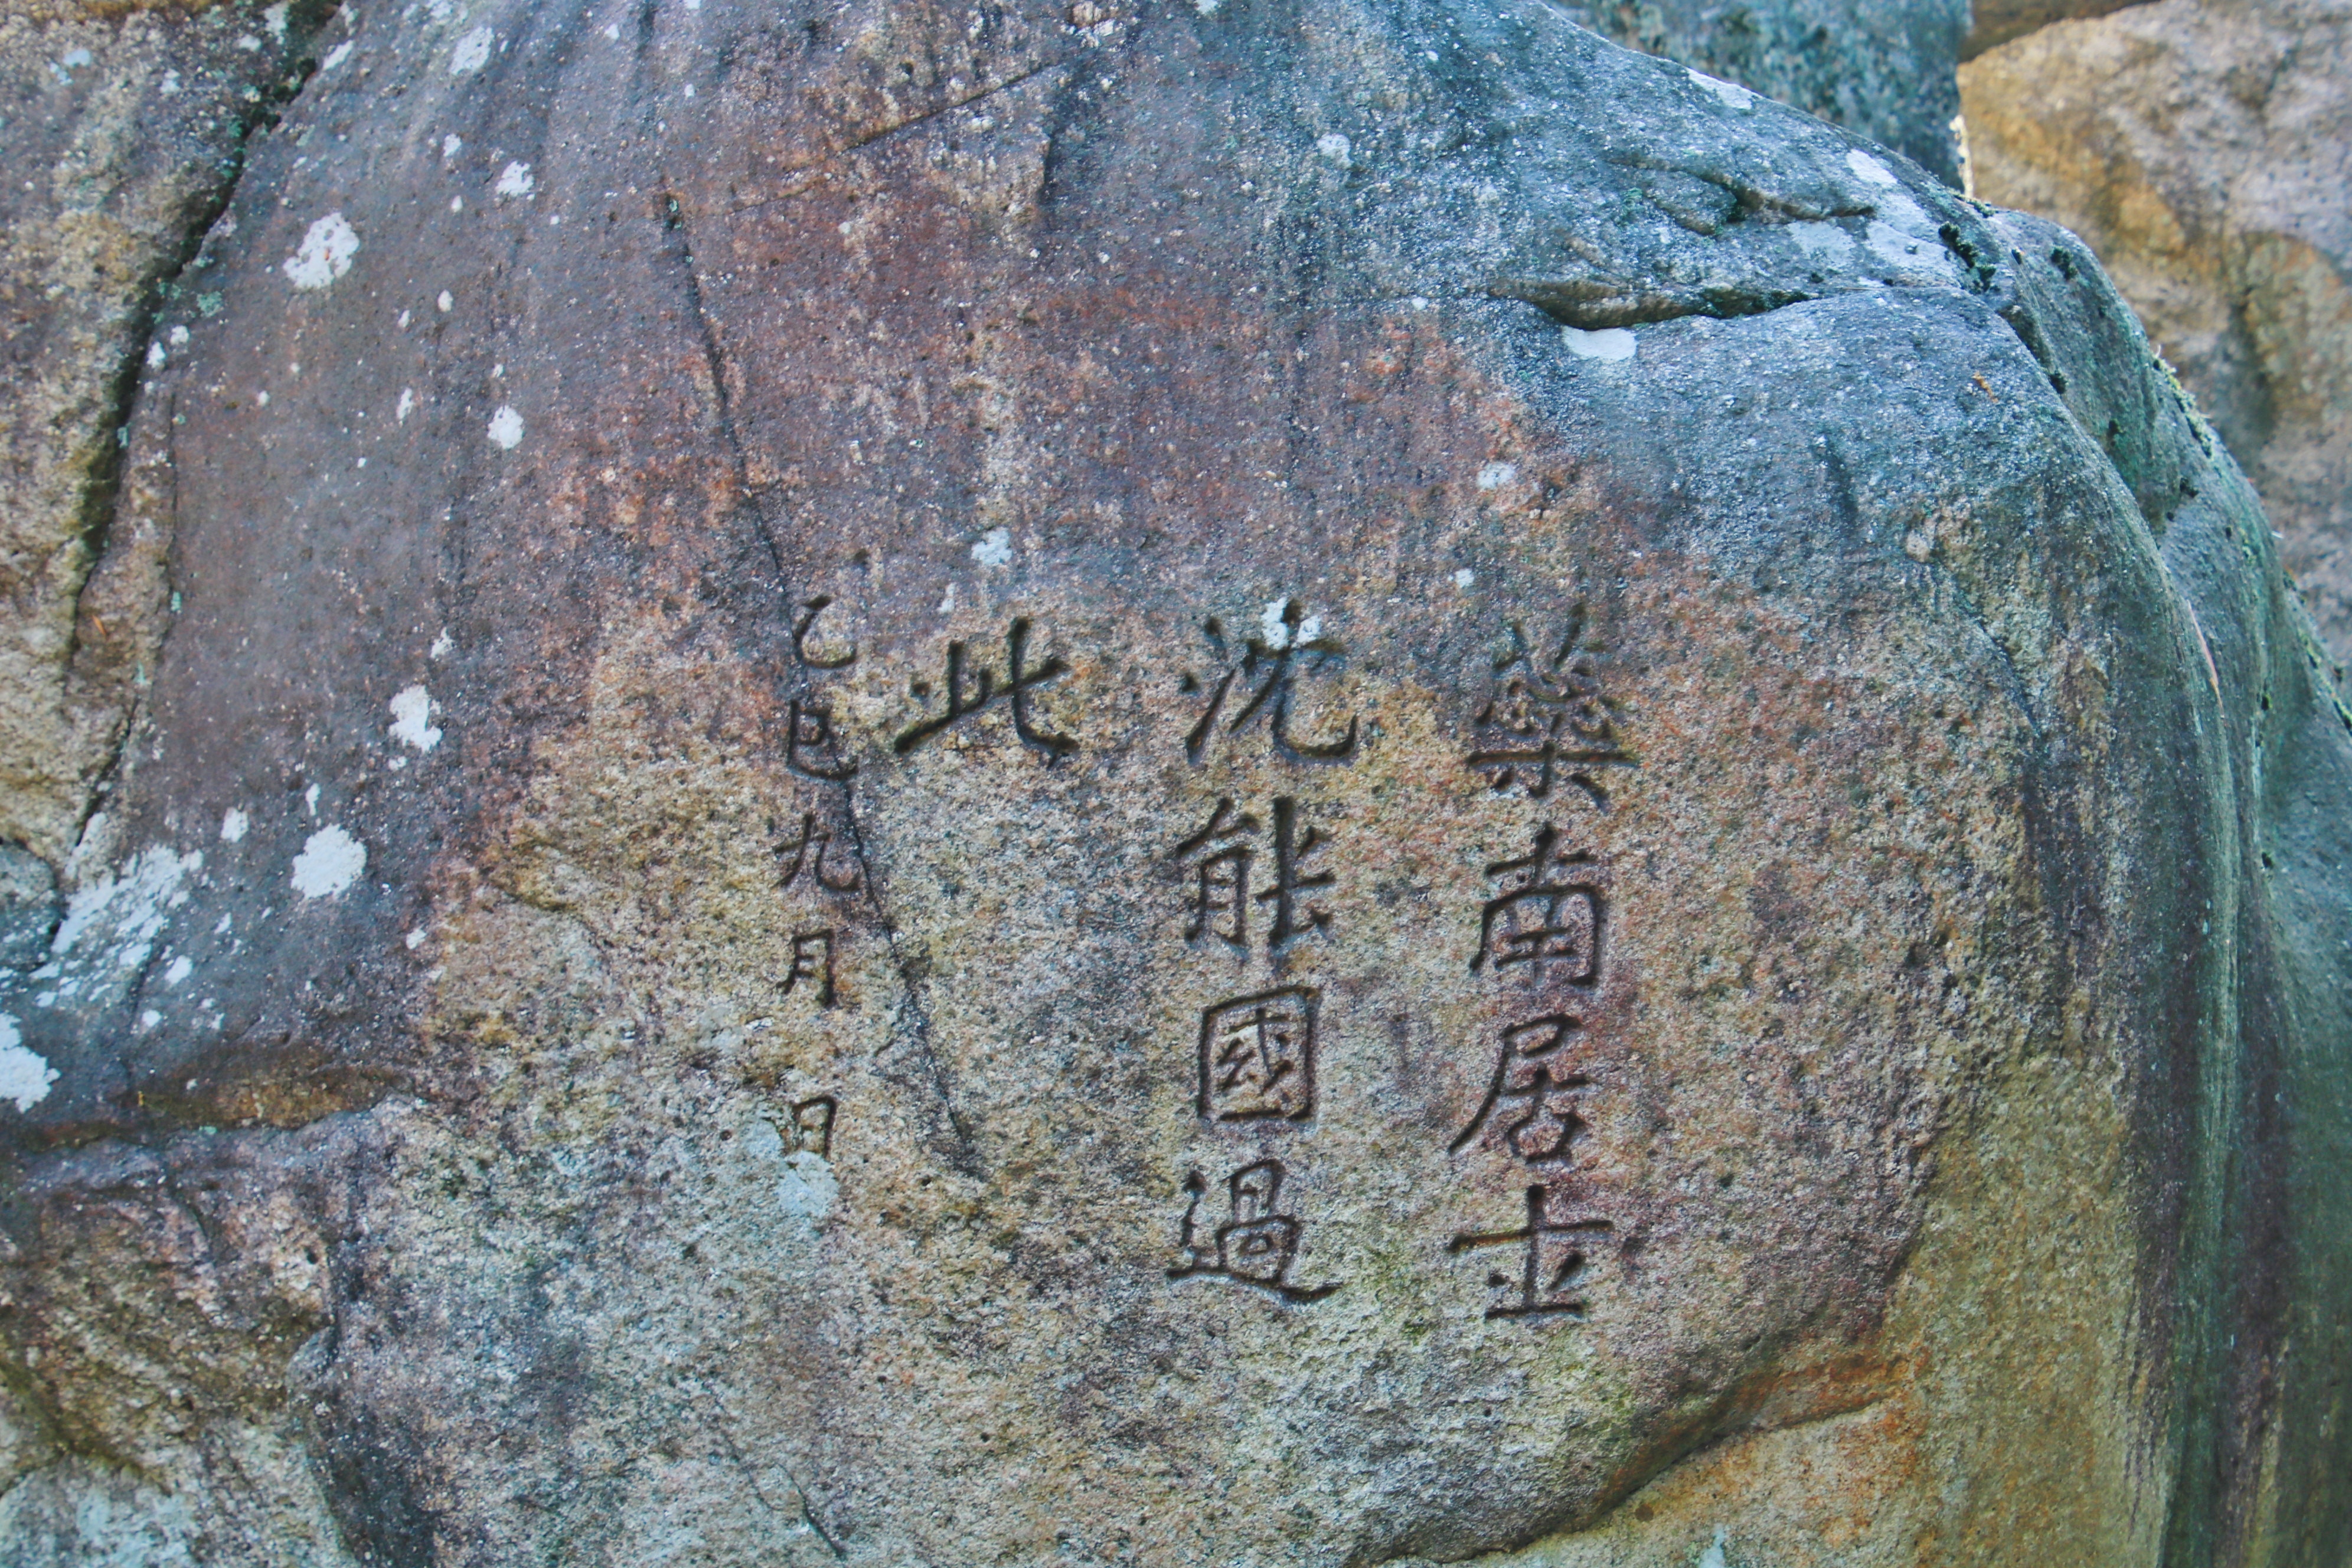 藥南居士
沈能國過
此
乙巳九月 日